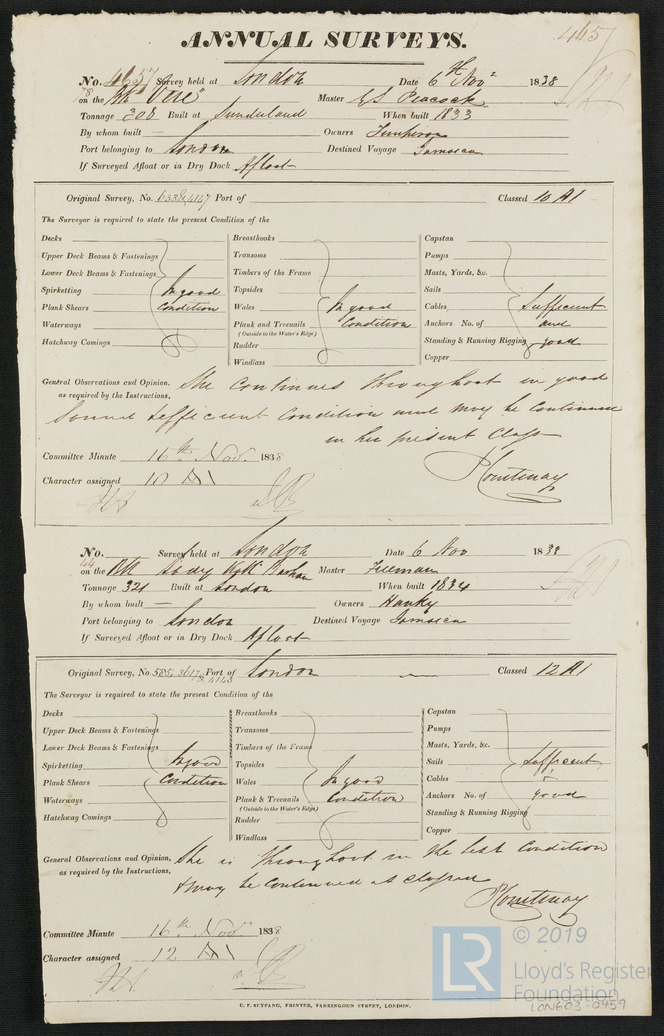 457
ANNUAL SURVEYS.
No. 4657 Survey held at London Date 6th Novr 1838
78 on the "Vere" Master Peacock
Tonnage 308 Built at Sunderland When built 1833
By whom built — Owners
Port belonging to London Destined Voyage Jamaica
If Surveyed Afloat or in Dry Dock Afloat
Original Survey, No. 4147 Port of Classed 10 A1
The Surveyor is required to state the present Condition of the
Decks
Upper Deck Beams & Fastenings
Lower Deck Beams & Fastenings
Spirketting In good
Plank Shears Condition
Waterways
Hatchway Comings
Breasthooks
Transoms
Timbers of the Frame
Topsides
Wales In good
Plank and Treenails Condition
(Outside to the Water's Edge)
Rudder
Windlass
Capstan
Pumps
Masts, Yards, &c.
Sails
Cables Sufficient
Anchors No. of and
Standing & Running Rigging good
Copper
General Observations and Opinion, She continues throughout in good
as required by the Instructions,
sound sufficient condition and may be continued
in her present Class
Committee Minute 16th Novr. 1838
Character assigned 10 A1
Courtenay
No. Survey held at London Date 6 Nov 1838
44 on the Bk Lady Master Freeman
Tonnage 321 Built at London When built 1834
By whom built — Owners Hanky
Port belonging to London Destined Voyage Jamaica
If Surveyed Afloat or in Dry Dock Afloat
Original Survey, No. 585, 3617 & 4143 Port of London Classed 12 A1
The Surveyor is required to state the present Condition of the
Decks
Upper Deck Beams & Fastenings
Lower Deck Beams & Fastenings
Spirketting In good
Plank Shears Condition
Waterways
Hatchway Comings
Breasthooks
Transoms
Timbers of the Frame
Topsides
Wales In good
Plank & Treenails Condition
(Outside to the Water's Edge)
Rudder
Windlass
Capstan
Pumps
Masts, Yards, &c.
Sails Sufficient
Cables &
Anchors No. of good
Standing & Running Rigging
Copper
General Observations and Opinion, She is throughout in the best condition
as required by the Instructions,
& may be continued as classed
Courtenay
Committee Minute 16th Novr. 1838
Character assigned 12 A1
C. F. SEYFANG, PRINTER, FARRINGDON STREET, LONDON.
LR © 2019
Lloyd's Register
Foundation
LON603-0459